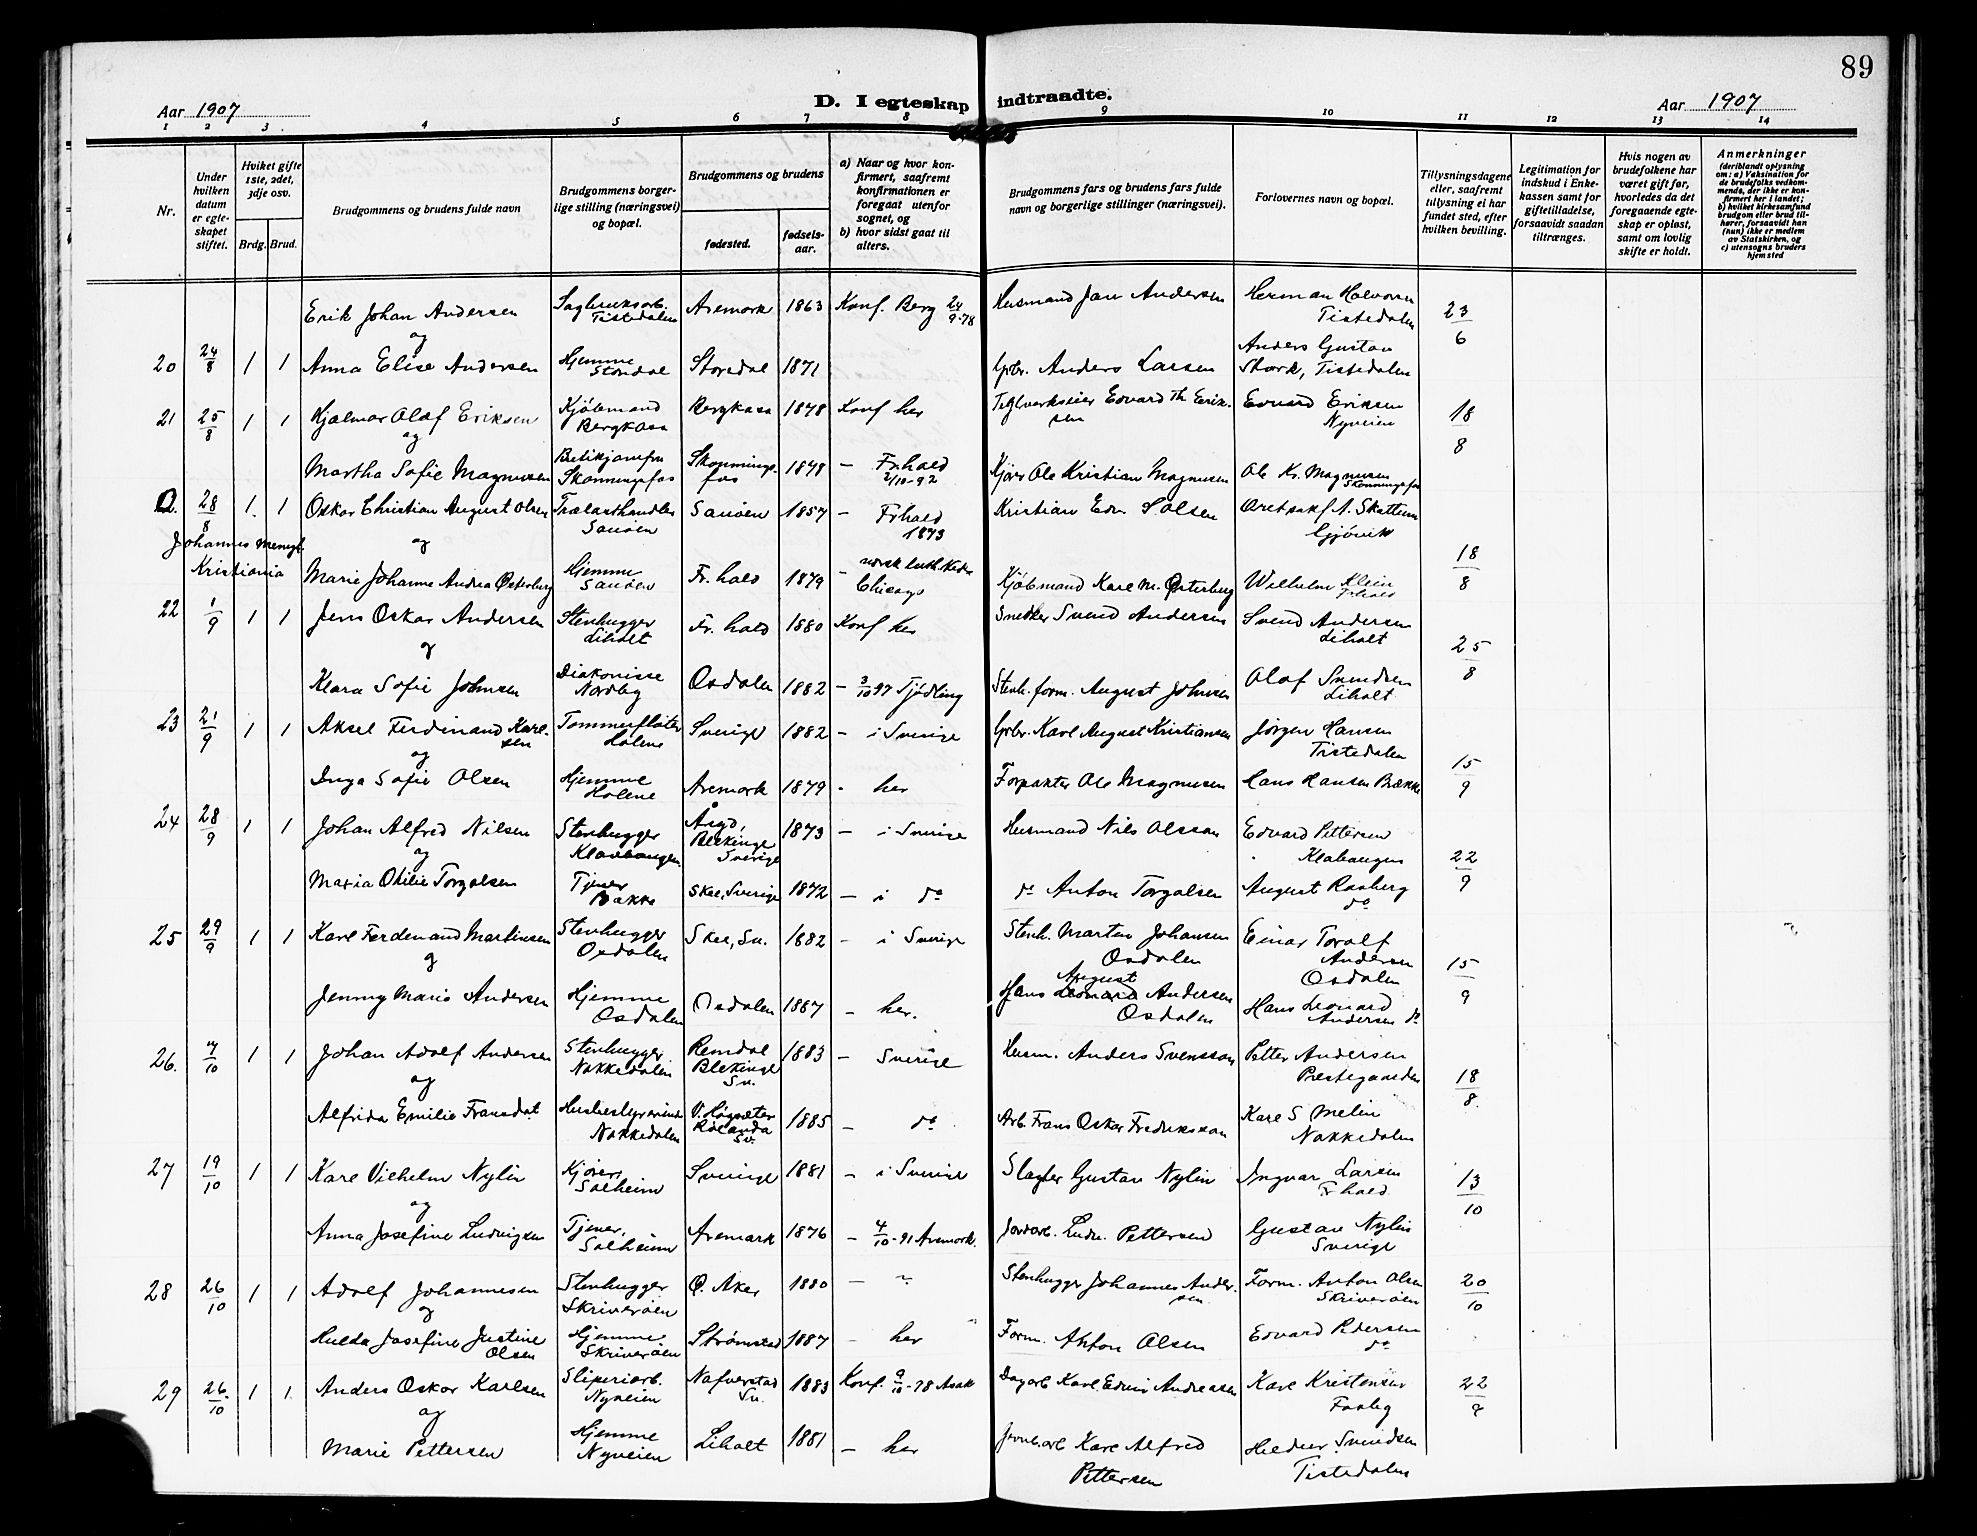 89
D. I egteskap indtraadte.
Aar 1907
Aar 1907
1 2 3 4 5 6 7 8 9 10 11 12 13 14
Nr.
Under hvilken datum er egteskapet stiftet.
Hviket gifte 1ste, 2det, 3dje osv.
Brdg. Brud.
Brudgommens og brudens fulde navn
Brudgommens borgerlige stilling (næringsvei) og bopæl.
Brudgommens og brudens
fødested.
fødselsaar.
a) Naar og hvor konfirmert, saafremt konfirmationen er foregaat utenfor sognet, og
b) hvor sidst gaat til alters.
Brudgommens fars og brudens fars fulde navn og borgerlige stillinger (næringsvei).
Forlovernes navn og bopæl.
Tillysningsdagene eller, saafremt tillysning ei har fundet sted, efter hvilken bevilling.
Legitimation for indskud i Enkekassen samt for giftetilladelse, forsaavidt saadan tiltrænges.
Hvis nogen av brudefolkene har været gift før, hvorledes da det foregaaende egteskap er opløst, samt om lovlig skifte er holdt.
Anmerkninger
(deriblandt oplysning om: a) Vaksination for de brudefolks vedkommende, der ikke er konfirmert her i landet; b) hvilket kirkesamfund brudgom eller brud tilhører, forsaavidt han (hun) ikke er medlem av Statskirken, og c) utensogns bruders hjemsted
Erik Johan Andersen Sagbruksarb. Tistedalen Aremark 1863 Konf. Berg 24/9-78 Husmand Jan Andersen Herman Halvorsen Tistedalen 23/6
og
20 24/8 1 1 Anna Elise Andersen Hjemme Storedal Storedal 1871 Gbr. Anders Larsen Anders Gustav Stork, Tistedalen
21 25/8 1 1 Hjalmar Olaf Eriksen Kjöbmand Bergkasa Bergkasa 1878 Konf her Teglverkseier Edvard Th. Eriksen Edvard Eriksen Nyveien 18/8
og
Martha Sofie Magnussen Butikjomfru Skonningsfos Skonningsfos 1878 – Fr.hald 2/10-92 Kjører Ole Kristian Magnusen Ole Kr. Magnusen Skonningsfos
Q. 28/8 1. 1 Oskar Christian August Olsen Trælasthandler Sauøen Sauøen 1857 – Frhald 1873 Kristian Edv. Solsen Overretssakf. A. Skattum Gjøvik
Johannes Menigh. Kristiania
og
Marie Johanne Andrea Østerberg Hjemme Sauøen Fr. hald 1879 – norsk luth. Kirke Chicago Kjöbmand Karl M. Østerberg Wilhelm Klein Frhald 18/8
22 1/9 1 1 Jens Oskar Andersen Stenhugger Liholt Fr. hald 1880 Konf her Snedker Svend Andersen Svend Andersen Liholt 25/8
og
Klara Sofie Johnsen Diakonisse Nordby Osdalen 1882 – 3/10 97 Tjødling Stenh. form. August Johnsen Olaf Svendsen Liholt
23 21/9 1 1 Aksel Ferdinand Karlsen Tømmerfløter Holene Sverige 1882 – i Sverige Gbr. Karl August Kristiansen Jörgen Hansen Tistedalen 15/9
og
Inga Sofie Olsen Hjemme Holene Aremark 1879 - her Forpakter Ole Magnusen Hans Hansen Bække
24 28/9 1 1 Johan Alfred Nilsen Stenhugger Klavhaugen Blekinge Sverige 1873 – i Sverige Husmand Nils Olsson Edvard Pettersen Klahaugen 22/9
og
Maria Otilie Torgalsen Tjener Bakke Skee, Sverige 1872 – i do do Anton Torgalsen August Rasberg do
25 29/9 1 1 Karl Ferdenand Martinsen Stenhugger Osdalen Skee, Sv. 1882 – i Sverige Stenh. Martin Johansen Osdalen Einar Toralf Andersen Osdalen 15/9
og
Jenny Marie Andersen Hjemme Osdalen Osdalen 1887 – her. Hans August Leonard Andersen Osdalen Hans Leonard Andersen do
26. 7/10 1 1 Johan Adolf Andersen Stenhugger Nakkedalen Remdal Blekinge Sv. 1883 – Sverige Husm. Anders Svensson Petter Andersen Prestegaarden 18/8
og
Alfrida Emilie Fransdot Husbestyrerinde Nakkedalen V. Högsæter Rölanda Sv. 1885 – do Arb. Frans Oskar Fredriksson Karl S Melin Nakkedalen
27 19/10 1 1 Karl Vilhelm Nylin Kjører, Solheim Sverige 1881 – i Sverige Slagter Gustav Nylin Ingvar Larsen Fr hald 13/10
og
Anna Josefine Ludvigsen Tjener, Solheim Aremark 1876 – 4/10-91 Aremark. Jordarb. Ludv. Pettersen Gustav Nylin Sverige
28 26/10 1 1 Adolf Johannesen Stenhugger Skriverøen Ø. Aker 1880 – " Stenhugger Johannes Andersen Form. Anton Olsen Skriverøen 20/10
og
Hulda Josefine Justine Olsen Hjemme Skriverøen Strømstad 1887 – her Form. Anton Olsen Edvard Pedersen do
29 26/10 1 1. Anders Oskar Karlsen Sliperiarb. Nyveien Nafverstad Sv. 1883 Konf. 9/10-78 Asak Dagarb Karl Edvin Andreassen Karl Kristensen Fosby 22/9
og
Marie Pettersen Hjemme Nyveien Liholt 1881 – her Jernb.arb Karl Alfred Pettersen Heldner Svendsen Tistedalen